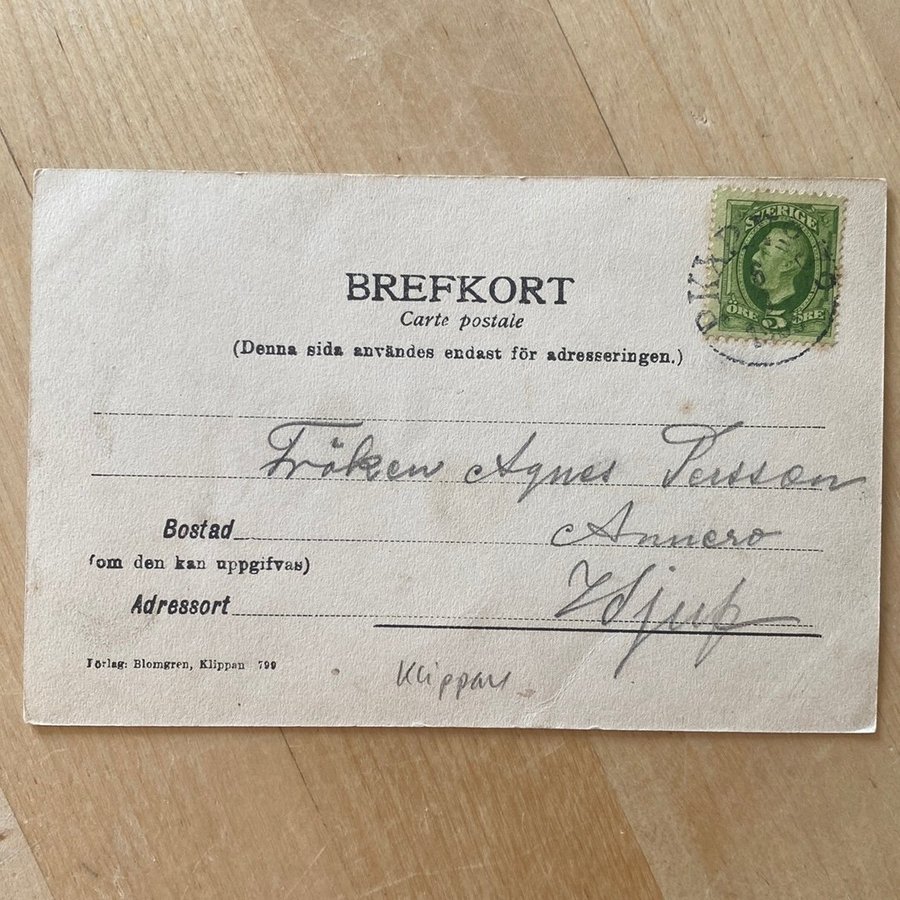 SVERIGE
ÖRE 5 ÖRE
BREFKORT
Carte postale
(Denna sida användes endast för adresseringen.)
Fröken Agnes Persson
Bostad Annero
(om den kan uppgifvas)
Adressort Djup
Förlag: Blomgren, Klippan 799
Klippan